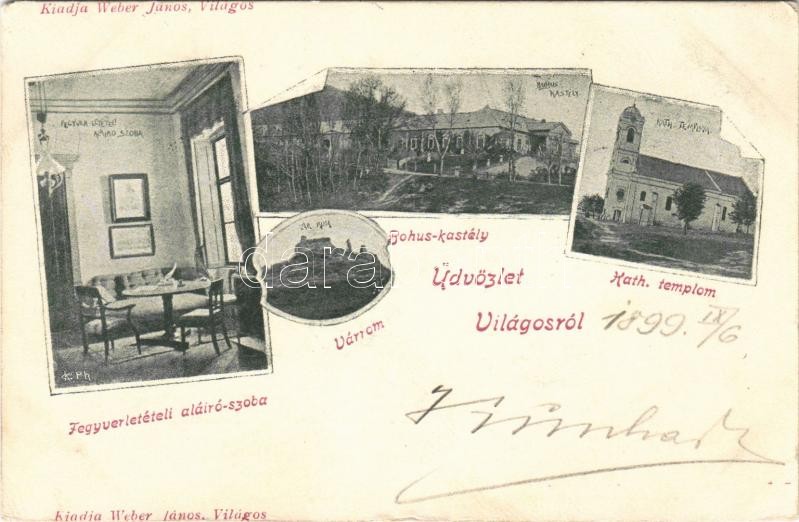 Kiadja Weber János, Világos
FEGYVER LETÉTELI
ALÁIRÓ SZOBA
BOHUS
KASTÉLY
KATH. TEMPLOM
VÁR ROM
Bohus-kastély
Üdvözlet
Kath. templom
Várrom
Világosról
1899. IX/6
Fegyverletételi aláiró-szoba
K. Ph.
darabanth
Kiadja Weber János. Világos